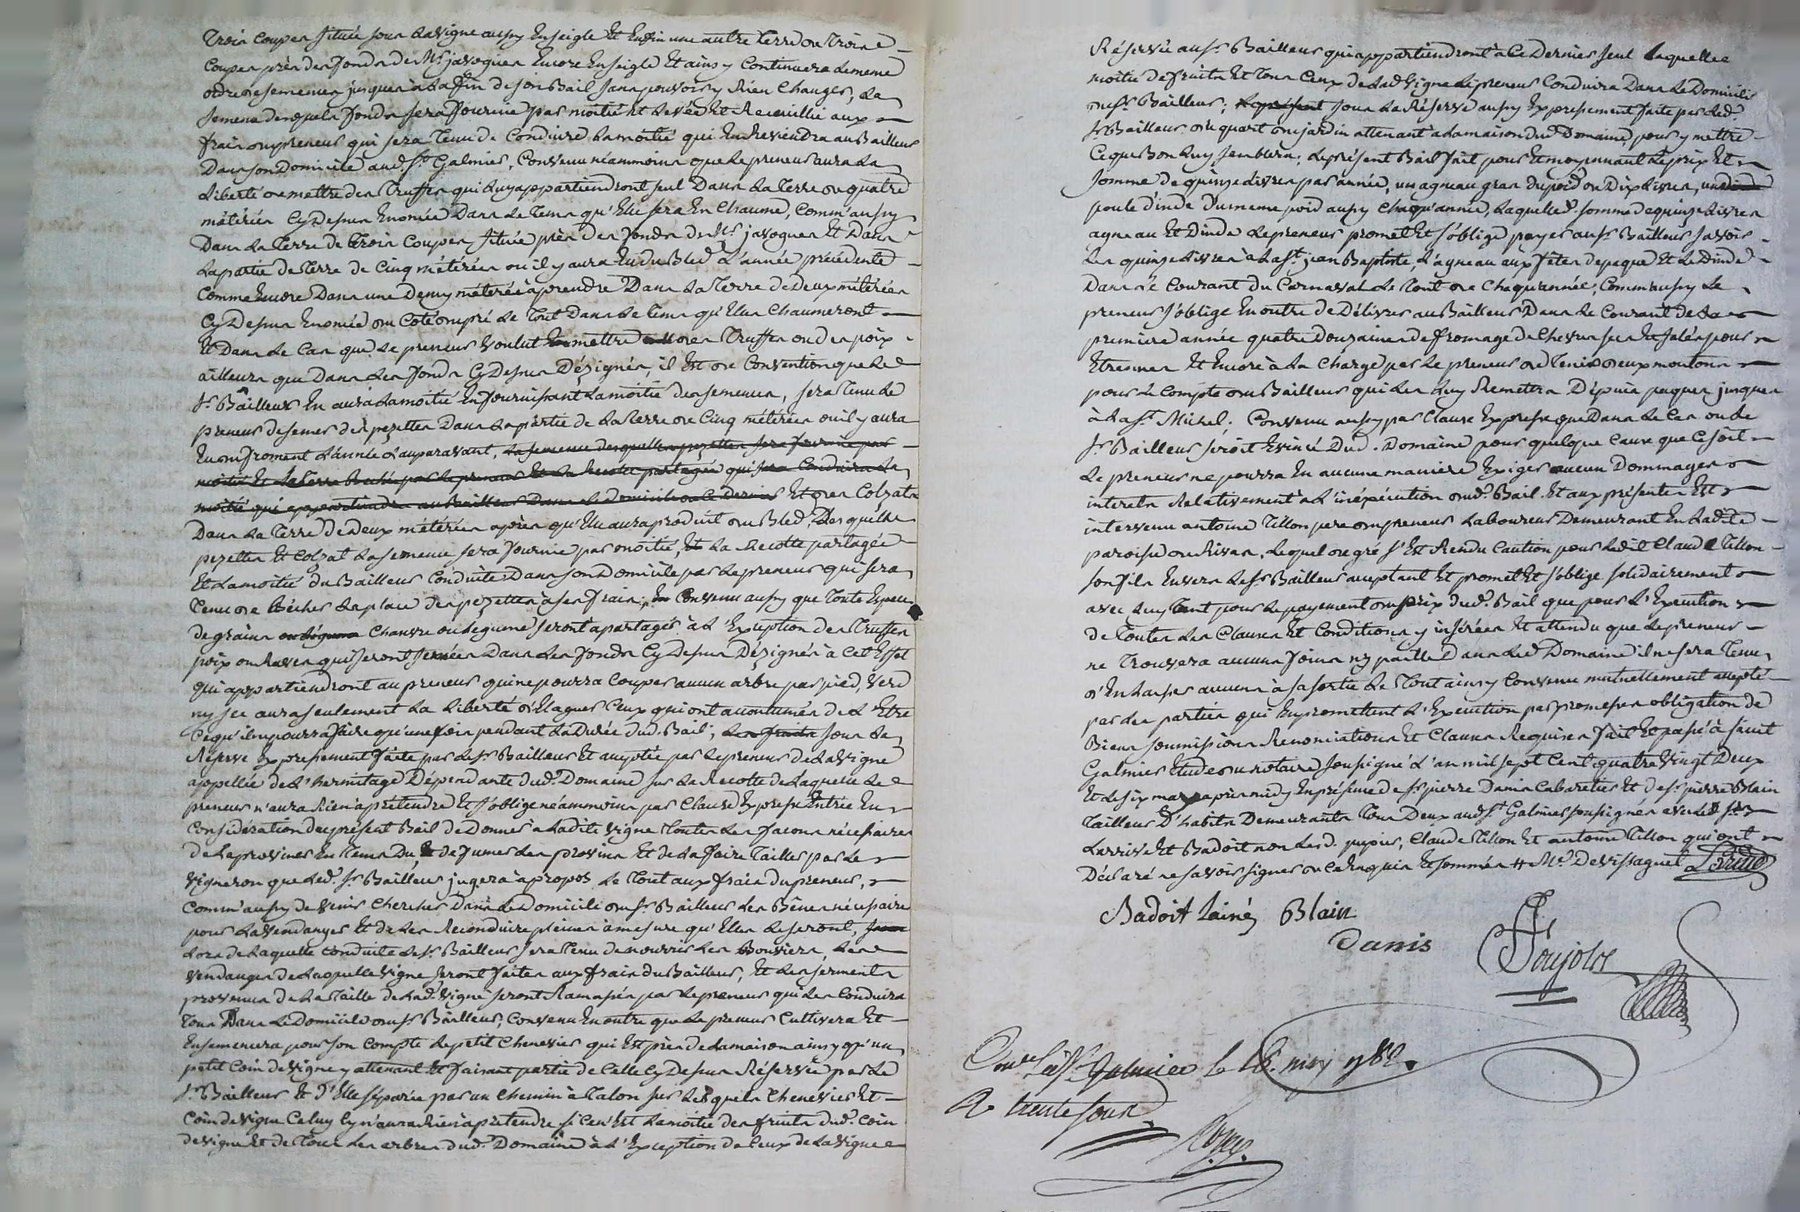 trois coupes situeé sous la vigne aussy En seigle Et Enfin une autre terre de trois
coupes près des fonds de Mr javogues Encore En seigle Et ainsy Continuera le meme
ordre de semences jusques à la fin de son Bail sans pouvoir y Rien Changer, la
semence desquels fonds sera fournie par moitié Et levée Et Recueillie aux
frais du preneur qui sera tenu de Conduire la moitié qui En Reviendra au Bailleur
Dans son Domicile aud. St Galmier, Convenu néammoins que le preneur aura la
liberté de mettre des truffes qui luy appartiendront seul Dans la terre de quatre
méterées Cy Dessus Enoncée Dans le tems qu'Elle sera En Chaume, Comm'aussy
Dans la terre de trois Coupes située près des fonds de Mr javogues Et Dans
la partie de terre de Cinq méterées où il y aura Eu du Bled l'année précédente
Comme Encore Dans une Demy méterée à prendre Dans la terre de Deux méterées
Cy Dessus Enoncée du Coté du pré le tout Dans le tems qu'Elles Chaumeront
Et Dans le Cas que le preneur voulut mettre des truffes ou des poix
ailleurs que Dans les fonds Cy Dessus Désignés, il Est de Convention que le
Sr Bailleur En aura la moitié En fournissant la moitié des semences, sera tenu le
preneur de semer des pezettes Dans la partie de la terre de Cinq méterées où il y aura
Eu du froment l'année d'auparavant, la semence desquelles pezettes sera fournie par
moitié Et la terre bechée par le preneur Et la Recolte partagée qui sera Conduira la
moitié qui appartiendra au Bailleur Dans le Domicile de Ce dernier Et des Colzats
Dans la terre de Deux méterées après qu'Elle aura produit du Bled, Desquelles
pezettes Et Colzat la semence sera fournie par moitié, Et La Recolte partagée
Et la moitié du Bailleur Conduite Dans son Domicile par le preneur qui sera
tenu de bécher la place des pezettes à ses frais, Convenu aussy que toute Espece
de grains ou légume Chanvre ou legume seront apartagés à L'Exception des truffes
poix ou Raves qui seront semées Dans les fonds Cy Dessus Désignés à Cet Effet
qui appartiendront au preneur qui ne pourra Couper aucun arbre par pied, Verd
ny sec aura seulement La liberté d'Elaguer Ceux qui ont accoutumés de L'Etre
Ce qu'il ne pourra faire qu'une fois pendant la Durée dud. Bail, Les fruits sous la
Réserve Expressement faite par le Sr Bailleur Et acceptée par le preneur de la vigne
appellée de L'hermitage Dépendante dud. Domaine sur La Recolte de laquelle Le
preneur n'aura Rien à prétendre Et s'oblige néammoins par Clause Expresse Entrée En
Considération du présent Bail de Donner à ladite vigne toutes les facons nécéssaires
de la proviner En tems Du de fumer les provins Et de la faire tailler par Le
vigneron que led. Sr Bailleur jugera à propos Le tout aux frais du preneur,
Comm'aussy de venir Chercher Dans le Domicile du Sr Bailleur les Bênes nécéssaires
pour la vendanges Et de les Reconduire pleines à mesure qu'Elles le seront,
Lors de laquelle Conduite le Sr Bailleur sera tenu de nourrir les Bouviers, Les
vendanges de laquelle vigne seront faites aux frais du Bailleur, Et les serments
provenus de la taille de lad. vigne seront Ramassés par le preneur qui les Conduira
tous Dans le Domicile du Sr Bailleur, Convenu En outre que le preneur Cultivera Et
Ensemencera pour son Compte le petit Chenevier qui Est près de la maison ainsy qu'un
petit Coin de vigne y attenant Et faisant partie de Celle Cy Dessus Réservée par Le
Sr Bailleur Et d'Elle séparée par un Chemin à talon sur lesquels Chenevier Et
Coin de vigne Celuy Cy n'aura Rien à prétendre si Ce n'Est la moitié des fruits dud. Coin
de vigne Et de tous les arbres dud. Domaine à L'Exception de Ceux de la vigne
Réservée au Sr Bailleur qui appartiendront à Ce Dernier seul Laquelle
moitié de fruits Et tous Ceux de lad. vigne le preneur Conduira Dans le Domicile
du Sr Bailleur; Le présent sous La Réserve aussy Expressement faite par led.
Sr Bailleur du quart du jardin attenant à la maison dud. Domaine, pour y mettre
Ce que Bon luy semblera, Le présent Bail fait pour Et moyennant Le prix Et
somme de quinze livres par année, un agneau gras du poid de Dix livres, un dinde
poule d'inde du meme poid aussy Chaqu'année, Laquelle d. somme de quinze livres
agneau Et Dinde Le preneur promet Et s'oblige payer au Sr Bailleur savoir
Les quinze livres à la St jean Baptiste, L'agneau aux fêtes de paque Et Le Dinde
Dans Le Courant du Carnaval Le tout de Chaqu'année, Comm'aussy Le
preneur s'oblige En outre de Délivrer au Bailleur Dans le Courant de la
premiere année quatre douzaines de fromage de Chevre secs Et salés pour
Etrennes Et Encore à La Charge par Le preneur de tenir deux moutons
pour Le Compte du Bailleur qui les luy Remettra Depuis paques jusques
à la St Michel. Convenu aussy par Clause Expresse que Dans Le Cas où le
Sr Bailleur seroit Evincé Dud. Domaine pour quelque Cause que Ce soit
Le preneur ne pourra En aucune maniere Exiger aucun Dommages
interets Relativement à L'inéxécution dud. Bail. Et aux présentes Est
intervenu antoine tillon pere du preneur Laboureur Demeurant En ladite
paroisse de Rivas, Lequel de gré s'Est Rendu Caution pour ledit Claude tillon
son fils Envers le Sr Bailleur acceptant Et promet Et s'oblige solidairement
avec luy tant pour le payement du prix dud. Bail que pour L'Execution
de toutes Les Clauses Et Conditions y insérées Et attendu que Le preneur
ne trouvera aucuns foins ny pailles Dans led. Domaine il ne sera tenu
d'En laisser aucuns à sa sortie Le tout ainsy Convenu mutuellement accepté
par les parties qui En promettent L'Execution par promesses obligation de
Biens soumissions Renonciations Et Clauses Requises fait Et passé à saint
Galmier Etude du notaire soussigné L'an mil sept Cent quatre vingt Deux
Et le six may après midy En présence de Sr pierre Danis Cabaretier Et de Sr pierre Blain
tailleur D'habits Demeurants tous Deux aud. St Galmier soussignés avec le Sr
Larrive Et Badoit non led. jupier, Claude tillon Et antoine tillon qui ont
Déclaré ne savoir signer de Ce Enquis Et sommés
Badoit Lainé, Blain
Danis
Poujolot
Con.le à St Galmier le 16 may 1782.
R trente sous